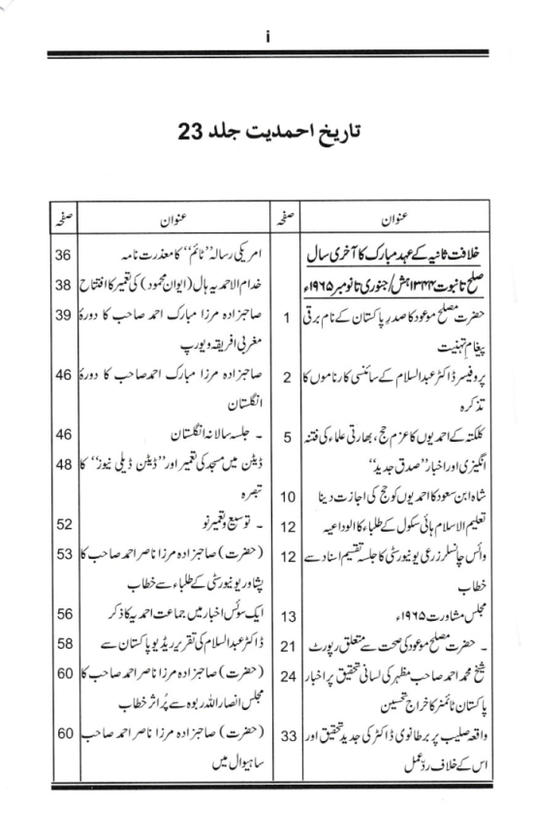 i
تاریخ احمدیت جلد 23
عنوان صفحہ
خلافت ثانیہ کے عہد مبارک کا آخری سال
صلح تا نبوت ۱۳۴۴ہش/جنوری تا نومبر ۱۹۶۵ء
حضرت مصلح موعود کا صدر پاکستان کے نام برقی 1
پیغام تہنیت
پروفیسر ڈاکٹر عبدالسلام کے سائنسی کارناموں کا 2
تذکرہ
کلکتہ کے احمدیوں کا عزم حج، بھارتی علماء کی فتنہ 5
انگیزی اور اخبار ”صدق جدید“
شاہ ابن سعود کا احمدیوں کو حج کی اجازت دینا 10
تعلیم الاسلام ہائی سکول کے طلباء کا الوداعیہ 12
وائس چانسلر زرعی یونیورسٹی کا جلسہ تقسیم اسناد سے 12
خطاب
مجلس مشاورت ۱۹۶۵ء 13
۔ حضرت مصلح موعود کی صحت سے متعلق رپورٹ 21
شیخ محمد احمد صاحب مظہر کی لسانی تحقیق پر اخبار 24
پاکستان ٹائمنر کا خراج تحسین
واقعہ صلیب پر برطانوی ڈاکٹر کی جدید تحقیق اور 33
اس کے خلاف ردّعمل
عنوان صفحہ
امریکی رسالہ ”ٹائم“ کا معذرت نامہ 36
خدام الاحمدیہ ہال (ایوان محمود) کی تعمیر کا افتتاح 38
صاحبزادہ مرزا مبارک احمد صاحب کا دورۂ 39
مغربی افریقہ و یورپ
صاحبزادہ مرزا مبارک احمد صاحب کا دورۂ 46
انگلستان
۔ جلسہ سالانہ انگلستان 46
ڈیٹن میں مسجد کی تعمیر اور ”ڈیٹن ڈیلی نیوز“ کا 48
تبصرہ
۔ توسیع و تعمیر نو 52
(حضرت) صاحبزادہ مرزا ناصر احمد صاحب کا 53
پشاور یونیورسٹی کے طلباء سے خطاب
ایک سوئس اخبار میں جماعت احمدیہ کا ذکر 56
ڈاکٹر عبدالسلام کی تقریر ریڈیو پاکستان سے 58
(حضرت) صاحبزادہ مرزا ناصر احمد صاحب کا 60
مجلس انصار اللہ ربوہ سے پُراثر خطاب
(حضرت) صاحبزادہ مرزا ناصر احمد صاحب 60
ساہیوال میں